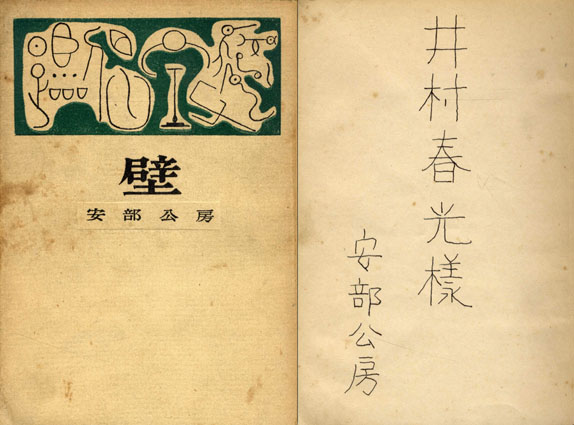 壁
安部公房
井村春光樣
安部公房